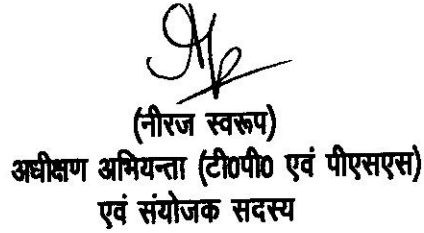 (नीरज स्वरूप)
अधीक्षण अभियन्ता (टी0पी0 एवं पीएसएस)
एवं संयोजक सदस्य